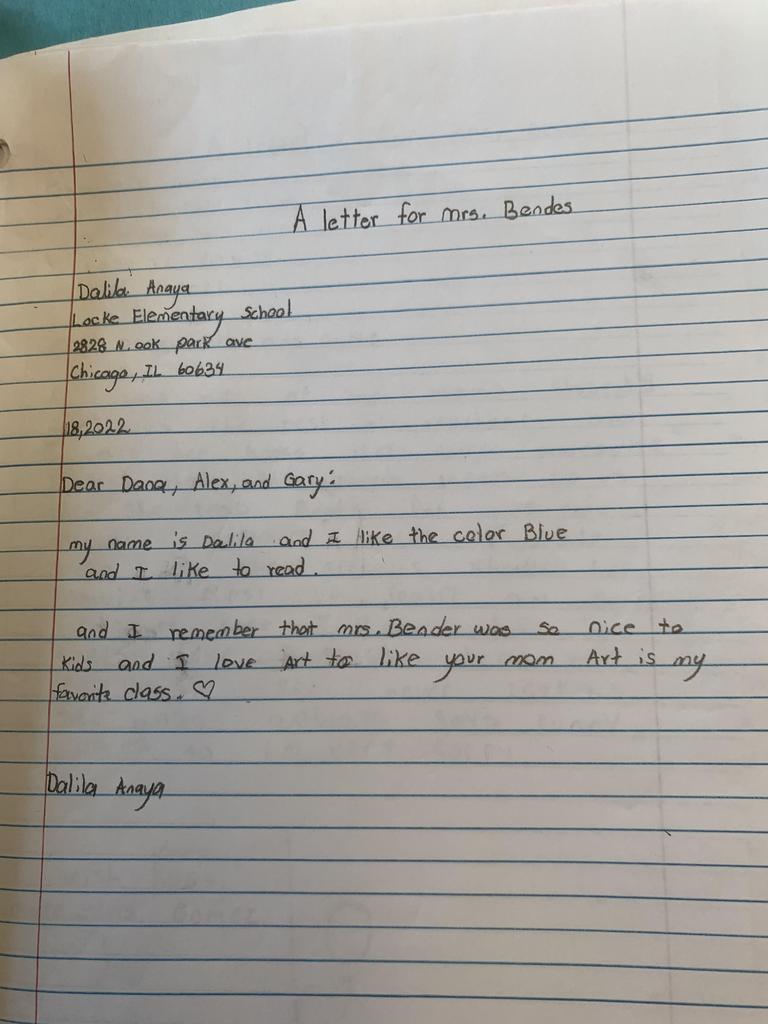 A letter for mrs. Bendes
Dalila Anaya
Locke Elementary School
2828 N. oak park ave
Chicago, IL 60634
18,2022
Dear Dana, Alex, and Gary:
my name is Dalila and I like the color Blue
and I like to read.
and I remember that mrs. Bender was so nice to
Kids and I love Art to like your mom Art is my
favorite class. ♡
Dalila Anaya